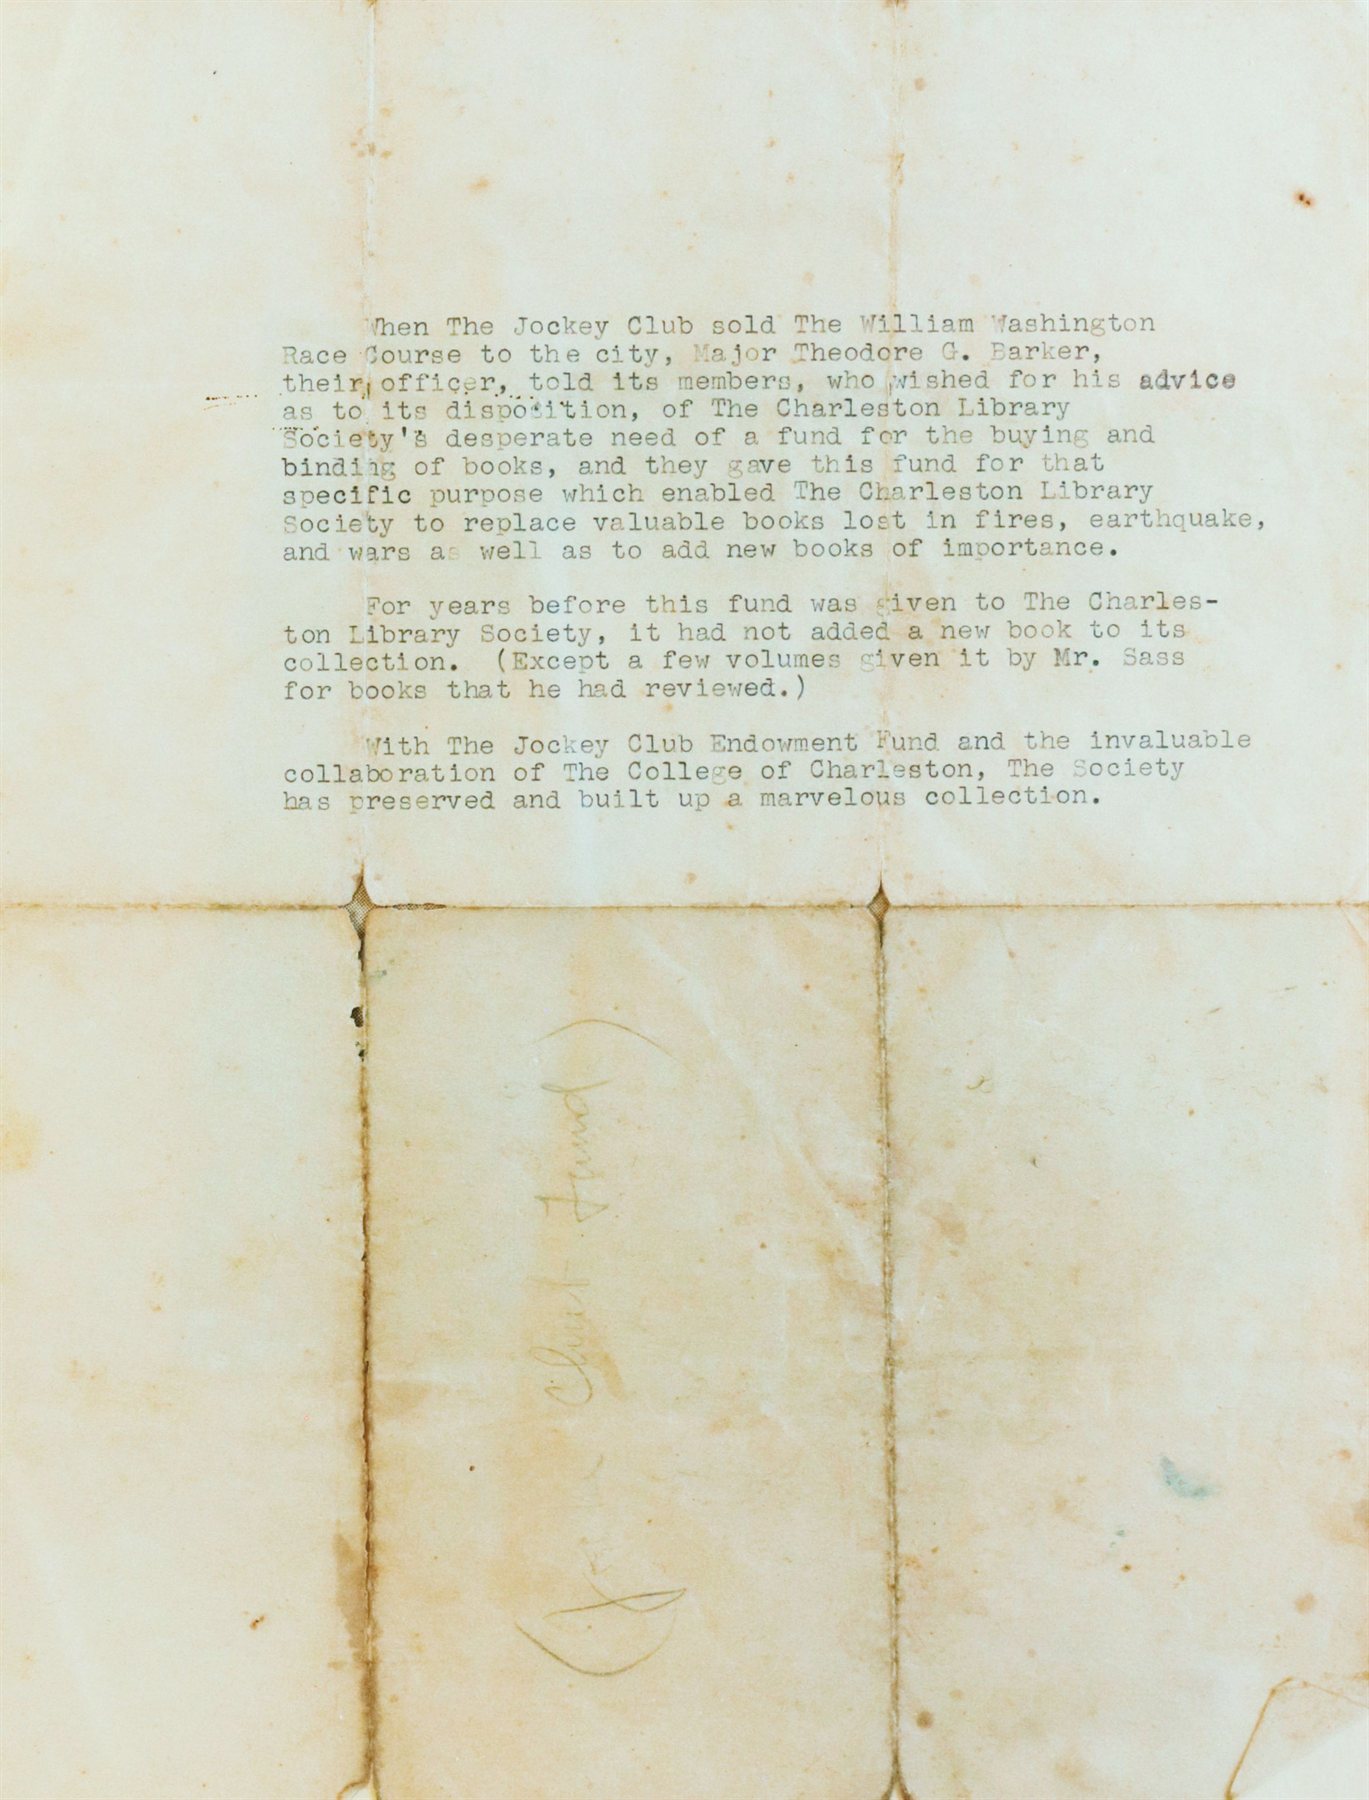 When The Jockey Club sold The William Washington
Race Course to the city, Major Theodore G. Barker,
their officer, told its members, who wished for his advice
as to its disposition, of The Charleston Library
Society's desperate need of a fund for the buying and
binding of books, and they gave this fund for that
specific purpose which enabled The Charleston Library
Society to replace valuable books lost in fires, earthquake,
and wars as well as to add new books of importance.
For years before this fund was given to The Charles-
ton Library Society, it had not added a new book to its
collection. (Except a few volumes given it by Mr. Sass
for books that he had reviewed.)
With The Jockey Club Endowment Fund and the invaluable
collaboration of The College of Charleston, The Society
has preserved and built up a marvelous collection.
Club Fund)